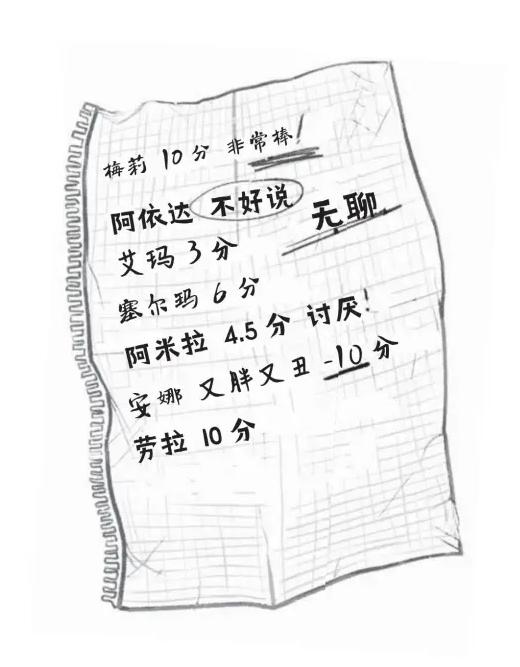 梅莉 10分 非常棒!
阿依达 不好说 无聊
艾玛 3分
塞尔玛 6分
阿米拉 4.5分 讨厌!
安娜 又胖又丑 -10分
劳拉 10分